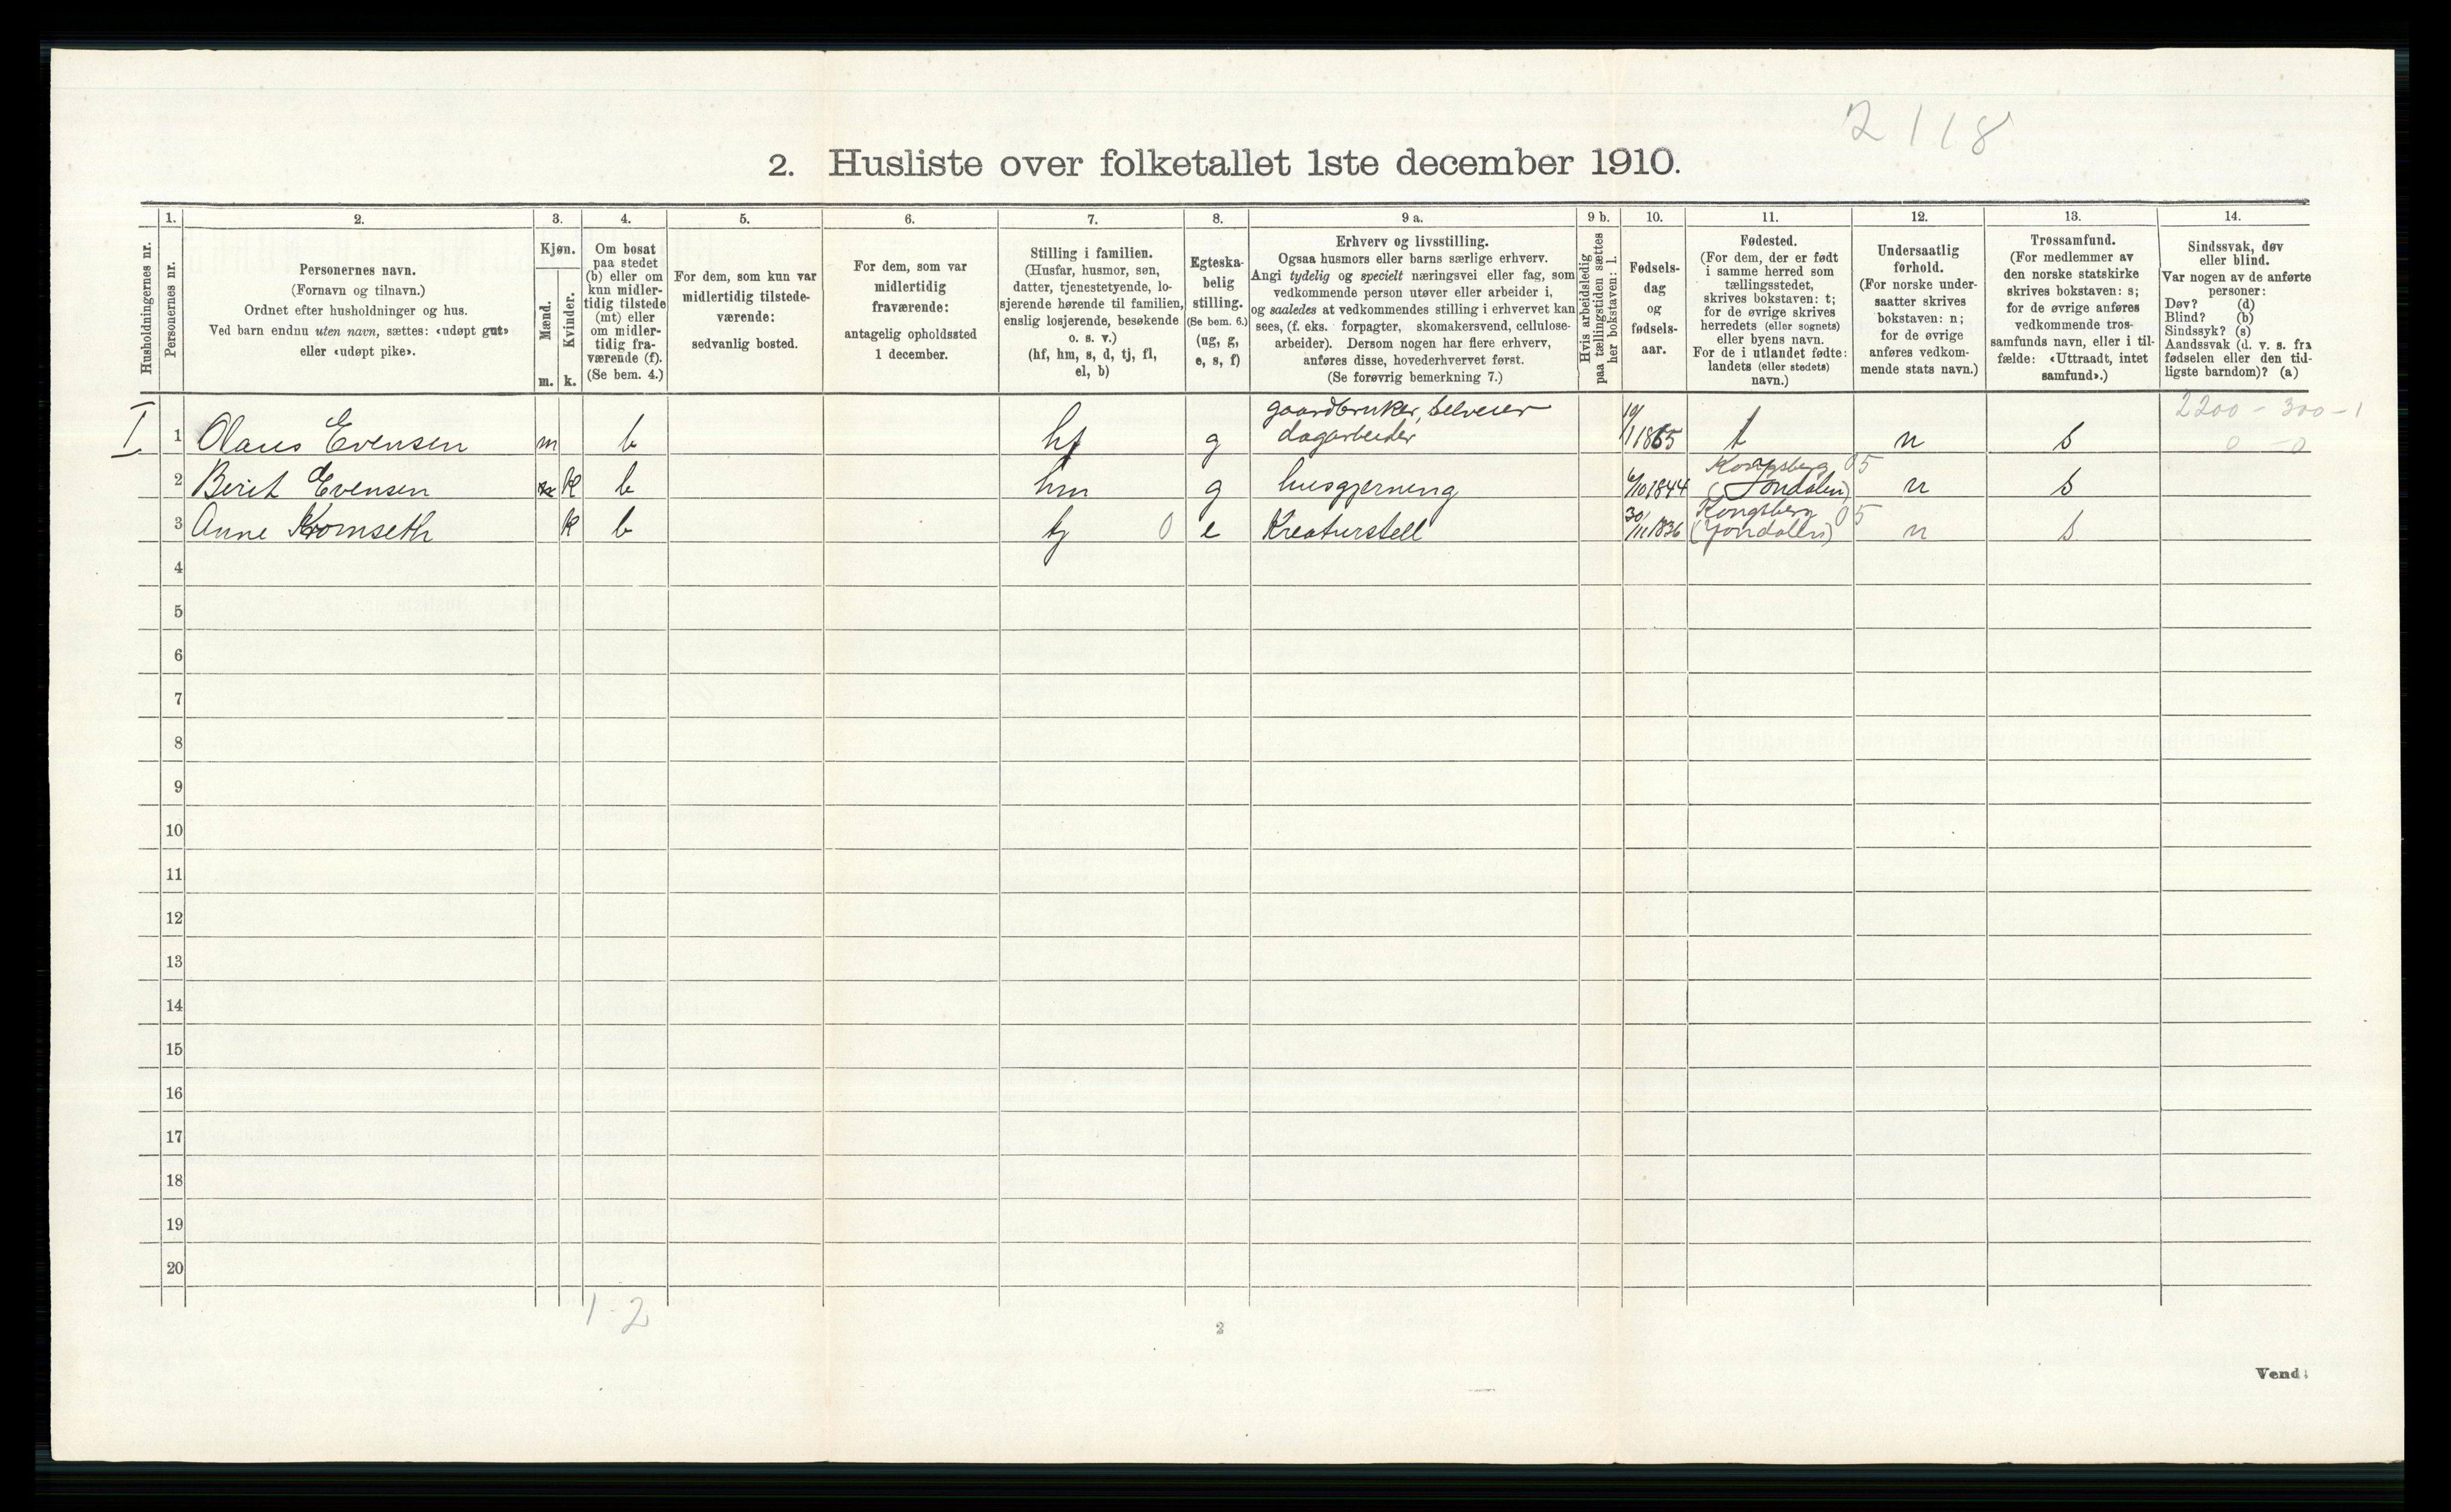 2118
2. Husliste over folketallet 1ste december 1910.
Husholdningernes nr.
1. Personernes nr.
2. Personernes navn.
(Fornavn og tilnavn.)
Ordnet efter husholdninger og hus.
Ved barn endnu uten navn, sættes: «udøpt gut»
eller «udøpt pike».
3. Kjøn.
Mænd. m.
Kvinder. k.
4. Om bosat
paa stedet
(b) eller om
kun midler-
tidig tilstede
(mt) eller
om midler-
tidig fra-
værende (f).
(Se bem. 4.)
5. For dem, som kun var
midlertidig tilstede-
værende:
sedvanlig bosted.
6. For dem, som var
midlertidig
fraværende:
antagelig opholdssted
1 december.
7. Stilling i familien.
(Husfar, husmor, søn,
datter, tjenestetyende, lo-
sjerende hørende til familien,
enslig losjerende, besøkende
o. s. v.)
(hf, hm, s, d, tj, fl,
el, b)
8. Egteska-
belig
stilling.
(Se bem. 6.)
(ug, g,
e, s, f)
9 a. Erhverv og livsstilling.
Ogsaa husmors eller barns særlige erhverv.
Angi tydelig og specielt næringsvei eller fag, som
vedkommende person utøver eller arbeider i,
og saaledes at vedkommendes stilling i erhvervet kan
sees, (f. eks. forpagter, skomakersvend, cellulose-
arbeider). Dersom nogen har flere erhverv,
anføres disse, hovederhvervet først.
(Se forøvrig bemerkning 7.)
9 b. Hvis arbeidsledig
paa tællingstiden sættes
her bokstaven: l.
10. Fødsels-
dag
og
fødsels-
aar.
11. Fødested.
(For dem, der er født
i samme herred som
tællingsstedet,
skrives bokstaven: t;
for de øvrige skrives
herredets (eller sognets)
eller byens navn.
For de i utlandet fødte:
landets (eller stedets)
navn.)
12. Undersaatlig
forhold.
(For norske under-
saatter skrives
bokstaven: n;
for de øvrige
anføres vedkom-
mende stats navn.)
13. Trossamfund.
(For medlemmer av
den norske statskirke
skrives bokstaven: s;
for de øvrige anføres
vedkommende tros-
samfunds navn, eller i til-
fælde: «Uttraadt, intet
samfund».)
14. Sindssvak, døv
eller blind.
Var nogen av de anførte
personer:
Døv? (d)
Blind? (b)
Sindssyk? (s)
Aandssvak (d. v. s. fra
fødselen eller den tid-
ligste barndom)? (a)
2200 - 300 - 1
0 - 0
I 1 Olaus Evensen m b hf g gaardbruker, selveier
dagarbeider 19/1 1865 t n s
2 Berit Evensen k b hm g husgjerning 6/10 1844 Kongsberg 05
(Jondalen) n s
3 Anne Kromseth k b tj 0 e Kreaturstell 30/11 1836 Kongsberg 05
(Jondalen) n s
4
5
6
7
8
9
10
11
12
13
14
15
16
17
18
19
20
1-2
2
Vend!